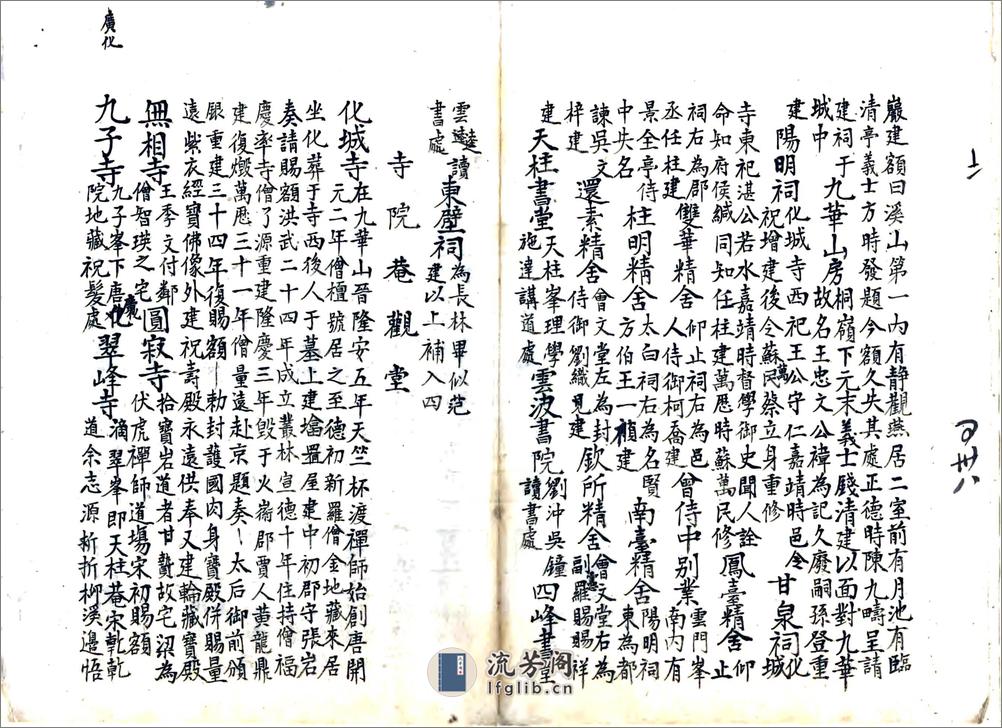 巖建額曰溪山第一內有静觀燕居二室前有月池有臨
清亭義士方時發題今額久失其處正德時陳九疇呈請
建祠于九華山房桐嶺下元末義士錢清建以面對九華
城中故名王忠文公禕為記久廢嗣孫登重
建陽明祠化城寺西祀王公守仁嘉靖時邑令
祝增建後令蘇萬民蔡立身重修甘泉祠化城
寺東祀湛公若水嘉靖時督學御史聞人詮
命知府侯緘同知任柱建萬歷時蘇萬民修鳳臺精舍仰止
祠右為郡丞任柱建雙華精舍仰止祠右為邑人侍御柯喬建曾侍中别業雲門峯南內有
景全亭侍中失名柱明精舍太白祠右為名賢方伯王一楨建南臺精舍陽明祠東為都
諫吳文梓建還素精舍會文堂左為封侍御劉織見建欽所精舍會文堂右為副憲羅賜祥
建天柱書堂天柱峯理學施達講道處雲波書院劉沖吳鐘讀書處四峰書堂
雲逵讀書處東壁祠為長林畢似范建以上補入四
寺院菴觀堂
化城寺在九華山晉隆安五年天竺杯渡禪師始創唐開
元二年僧檀號居之至德初新羅僧金地藏來居
坐化葬于寺西後人于墓上建墖置屋建中初郡守張岩
奏請賜額洪武二十四年成立叢林宣德十年住持僧福
慶率寺僧了源重建隆慶三年毁于火嵛郡賈人黄龍鼎
建復燬萬歷三十一年僧量遠赴京題奏太后御前頒
銀重建三十四年復賜額勅封護國肉身寶殿併賜量
遠紫衣經寶佛像外建祝壽殿永遠供奉又建輪藏寶殿
無相寺王季文付鄰僧智瑛之宅圓寂寺伏虎禪師道場宋初賜額
拾寶岩道者甘贄故宅梁為
九子寺九子峯下唐廣化院地藏祝髮處翠峰寺滴翠峯即天柱菴宋乾
道余志源析折柳溪邉悟
廣化
流芳阁
lfglib.cn